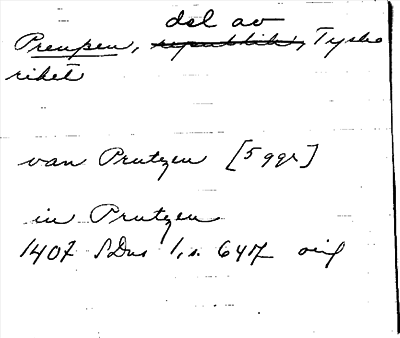 del av
Preussen, republik, Tyska
riket
van Prutzen [5 ggr]
in Prutzen
1407 SDns 1, s. 647 orig